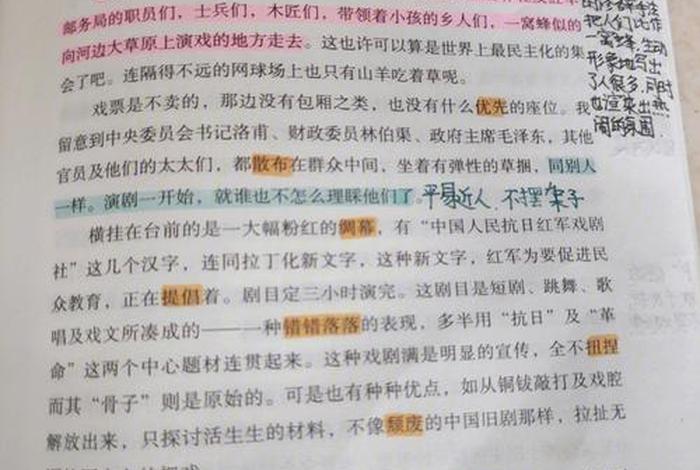 邮务局的职员们，士兵们，木匠们，带领着小孩的乡人们，一窝蜂似的
向河边大草原上演戏的地方走去。这也许可以算是世界上最民主化的集
会了吧。连隔得不远的网球场上也只有山羊吃着草呢。
戏票是不卖的，那边没有包厢之类，也没有什么优先的座位。我
留意到中央委员会书记洛甫、财政委员林伯渠、政府主席毛泽东，其他
官员及他们的太太们，都散布在群众中间，坐着有弹性的草捆，同别人
一样。演剧一开始，就谁也不怎么理睬他们了。平易近人、不摆架子
横挂在台前的是一大幅粉红的绸幕，有“中国人民抗日红军戏剧
社”这几个汉字，连同拉丁化新文字，这种新文字，红军为要促进民
众教育，正在提倡着。剧目定三小时演完。这剧目是短剧、跳舞、歌
唱及戏文所凑成的——一种错错落落的表现，多半用“抗日”及“革
命”这两个中心题材连贯起来。这种戏剧满是明显的宣传，全不扭捏
而其“骨子”则是原始的。可是也有种种优点，如从铜钹敲打及戏腔
解放出来，只探讨活生生的材料，不像颓废的中国旧剧那样，拉扯无
把人们比作
一窝蜂，生动
形象地写出
了人很多，同时
也渲染出热
闹的氛围.